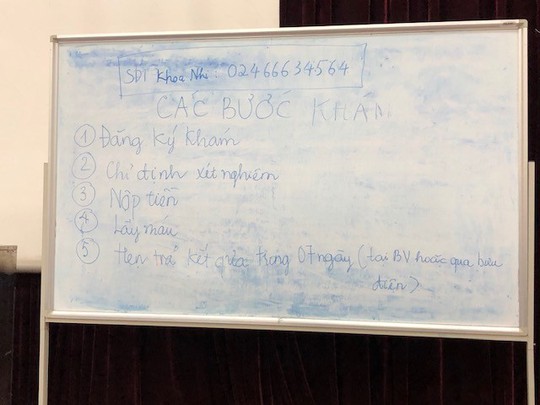 SĐT Khoa Nhi: 02466634564
CÁC BƯỚC KHÁM
① Đăng ký khám
② Chỉ định xét nghiệm
③ Nộp tiền
④ Lấy máu
⑤ Hẹn trả kết quả trong 07 ngày (tại BV hoặc qua bưu
điện)